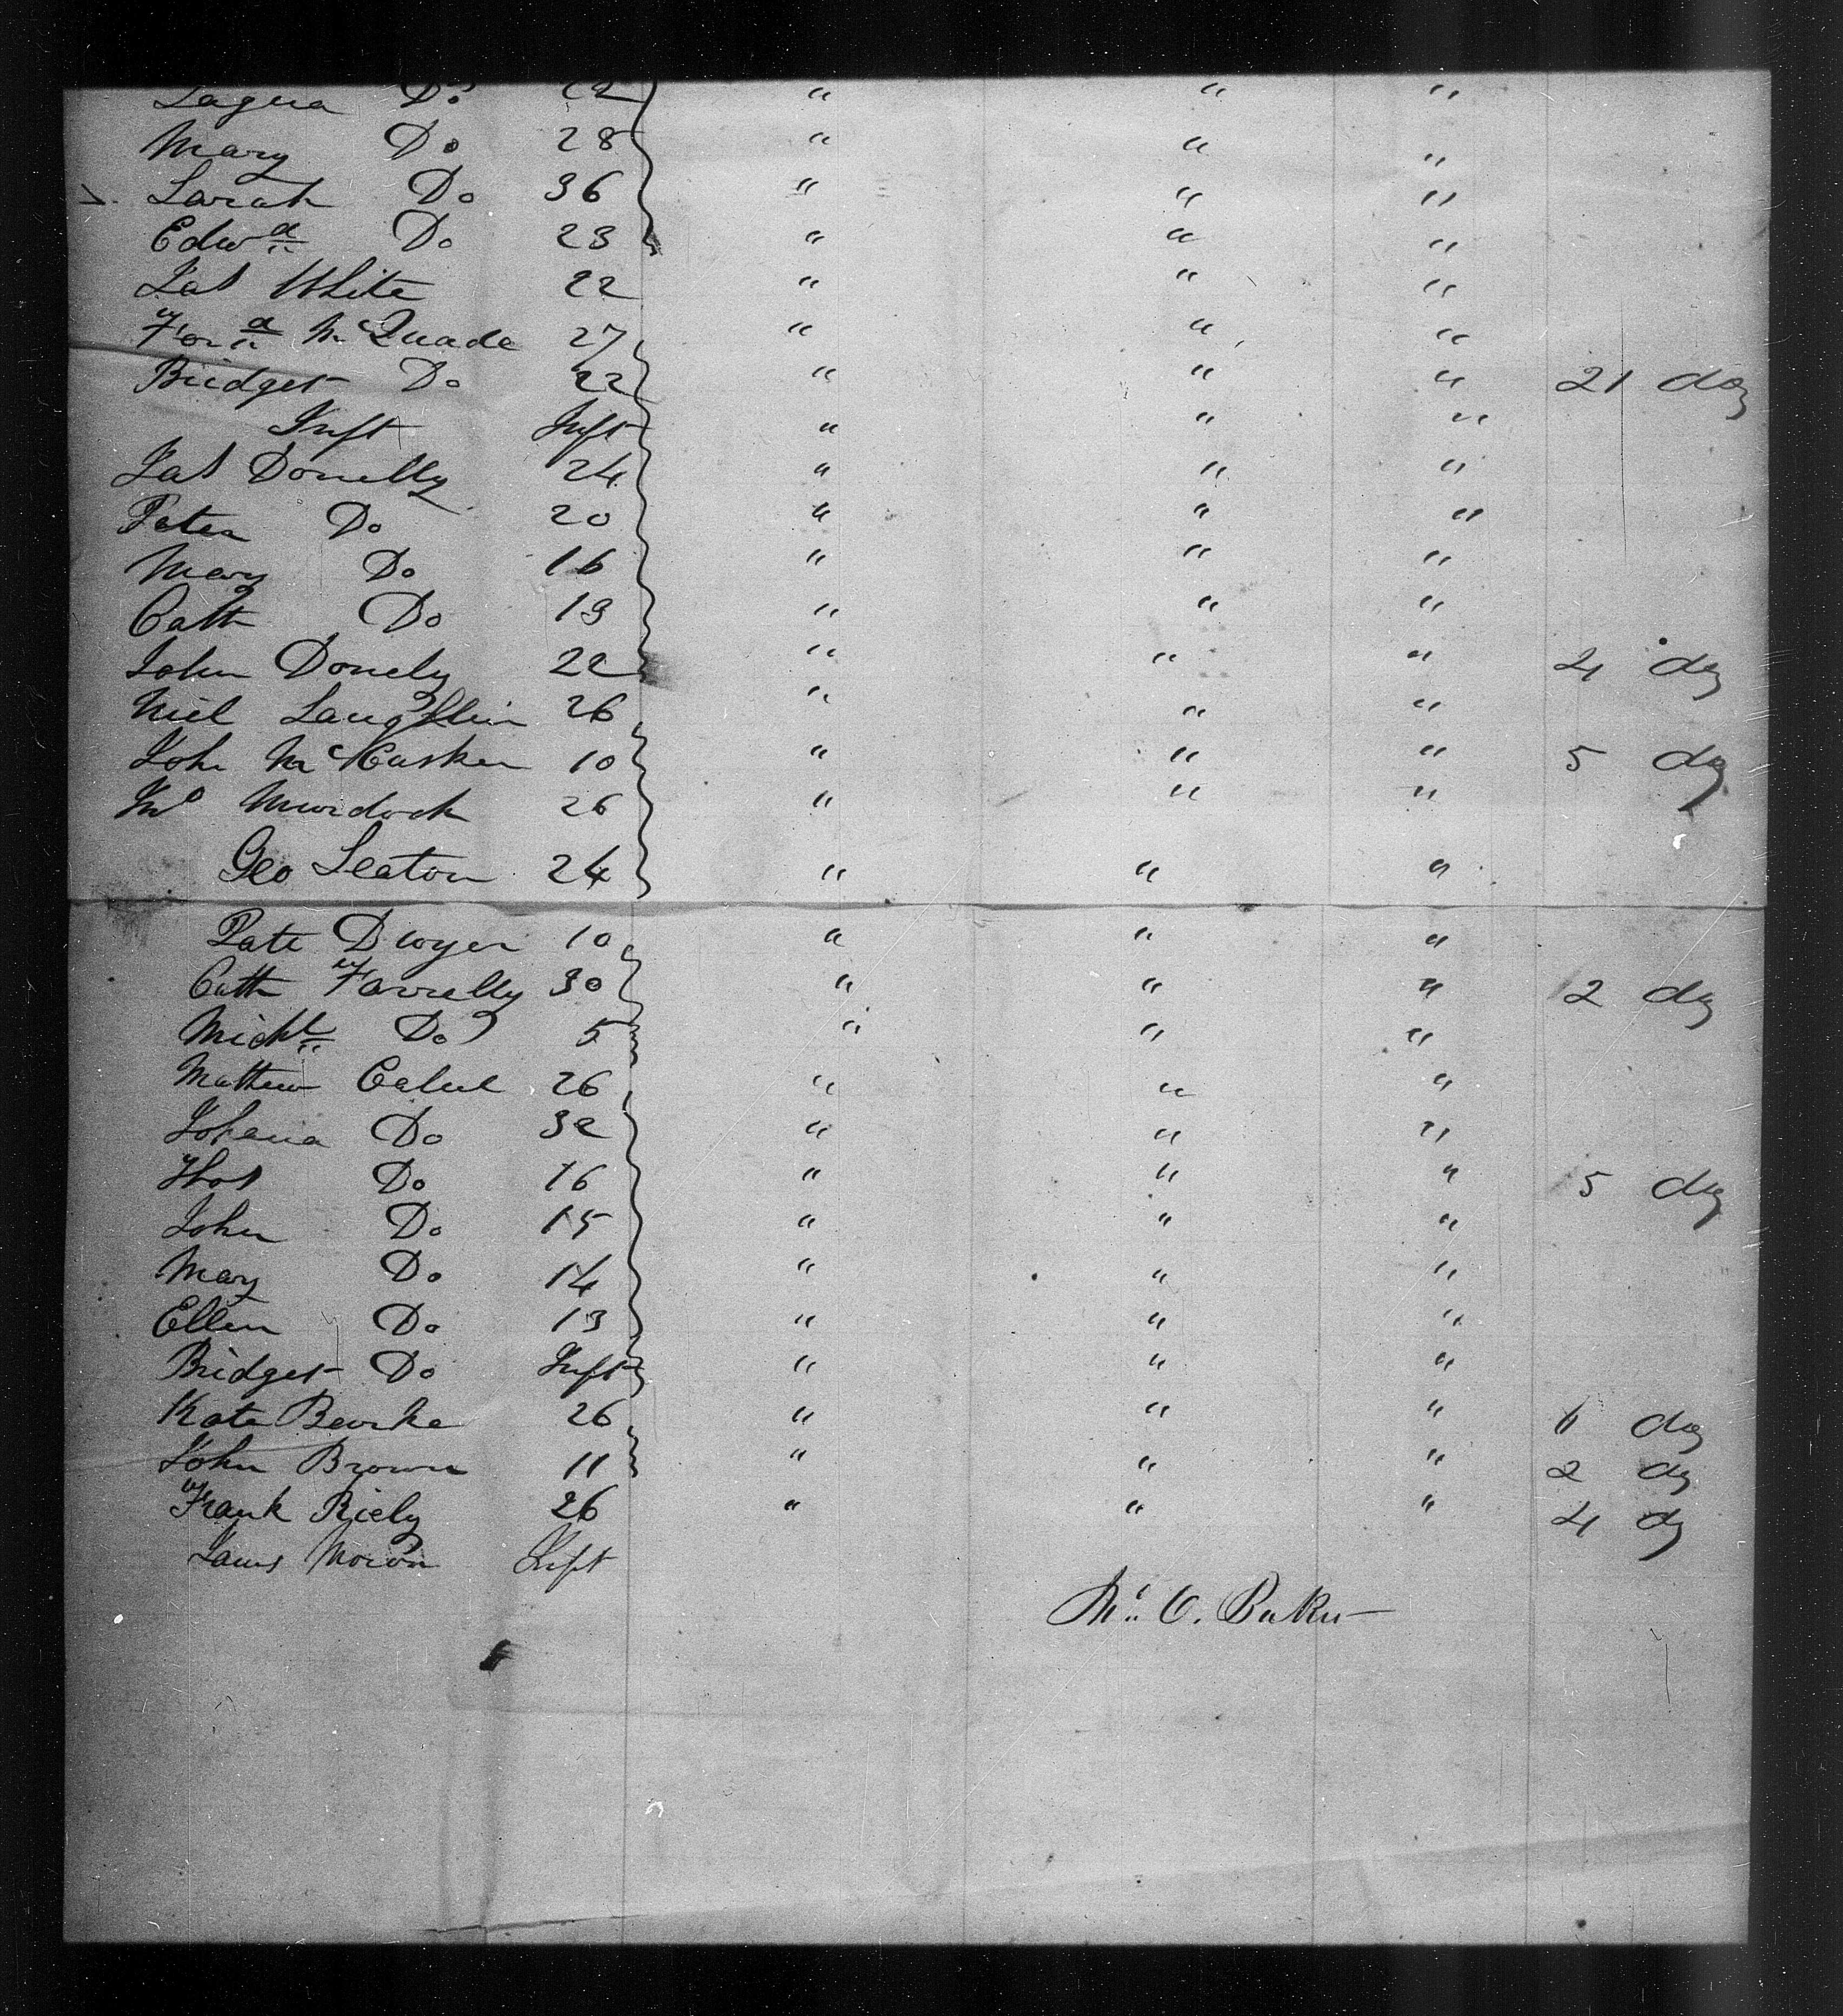 Do 22 " " "
Mary Do 28 " " "
Sarah Do 36 " " "
Edwd Do 23 " " "
Jas White 22 " " "
Ferd McQuade 27 " " "
Bridget Do 22 " " " 21 day
Inft Inft " " "
Jas Donelly 24 " " "
Peter Do 20 " " "
Mary Do 16 " " "
Cath Do 13 " " "
John Donely 22 " " " 4 day
Niel Laughlin 26 " " "
John McCusker 10 " " " 5 day
Murdock 26 " " "
Geo Seaton 24 " " "
Pate Dwyer 10 " " "
Cath Farrelly 30 " " " 2 day
Michl Do 5 " " "
Mathew 26 " " "
Johana Do 32 " " "
Thos Do 16 " " " 5 day
John Do 15 " " "
Mary Do 14 " " "
Ellen Do 13 " " "
Bridget Do Inft " " "
Kate Bourke 26 " " " 6 day
John Brown 11 " " " 2 day
Frank Riely 26 " " " 4 dy
James Moron
Baker